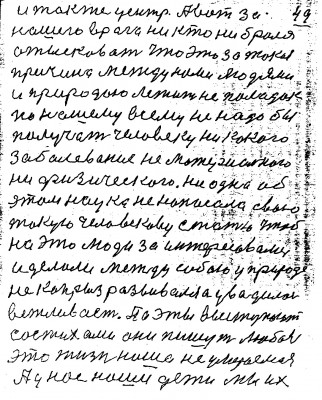 и также центр. А вот за- 49
нашего врага никто ни брался
отысковат что это за токая
причина между нами людями
и природою лежит не поладок
по нашему всему не надо бы
получат человеку ни какого
заболевание не материального
ни физического. ни одна об
этом наука не написала свою
такую человекову статью чтоб
на это люди заинтересовали
и делали между собою и природ
не каприз развивался а уважени
вежливает. Поэты выступают
со стихами они пишут любов
это жизн наша не умераемая
А у нас наши дети мы их